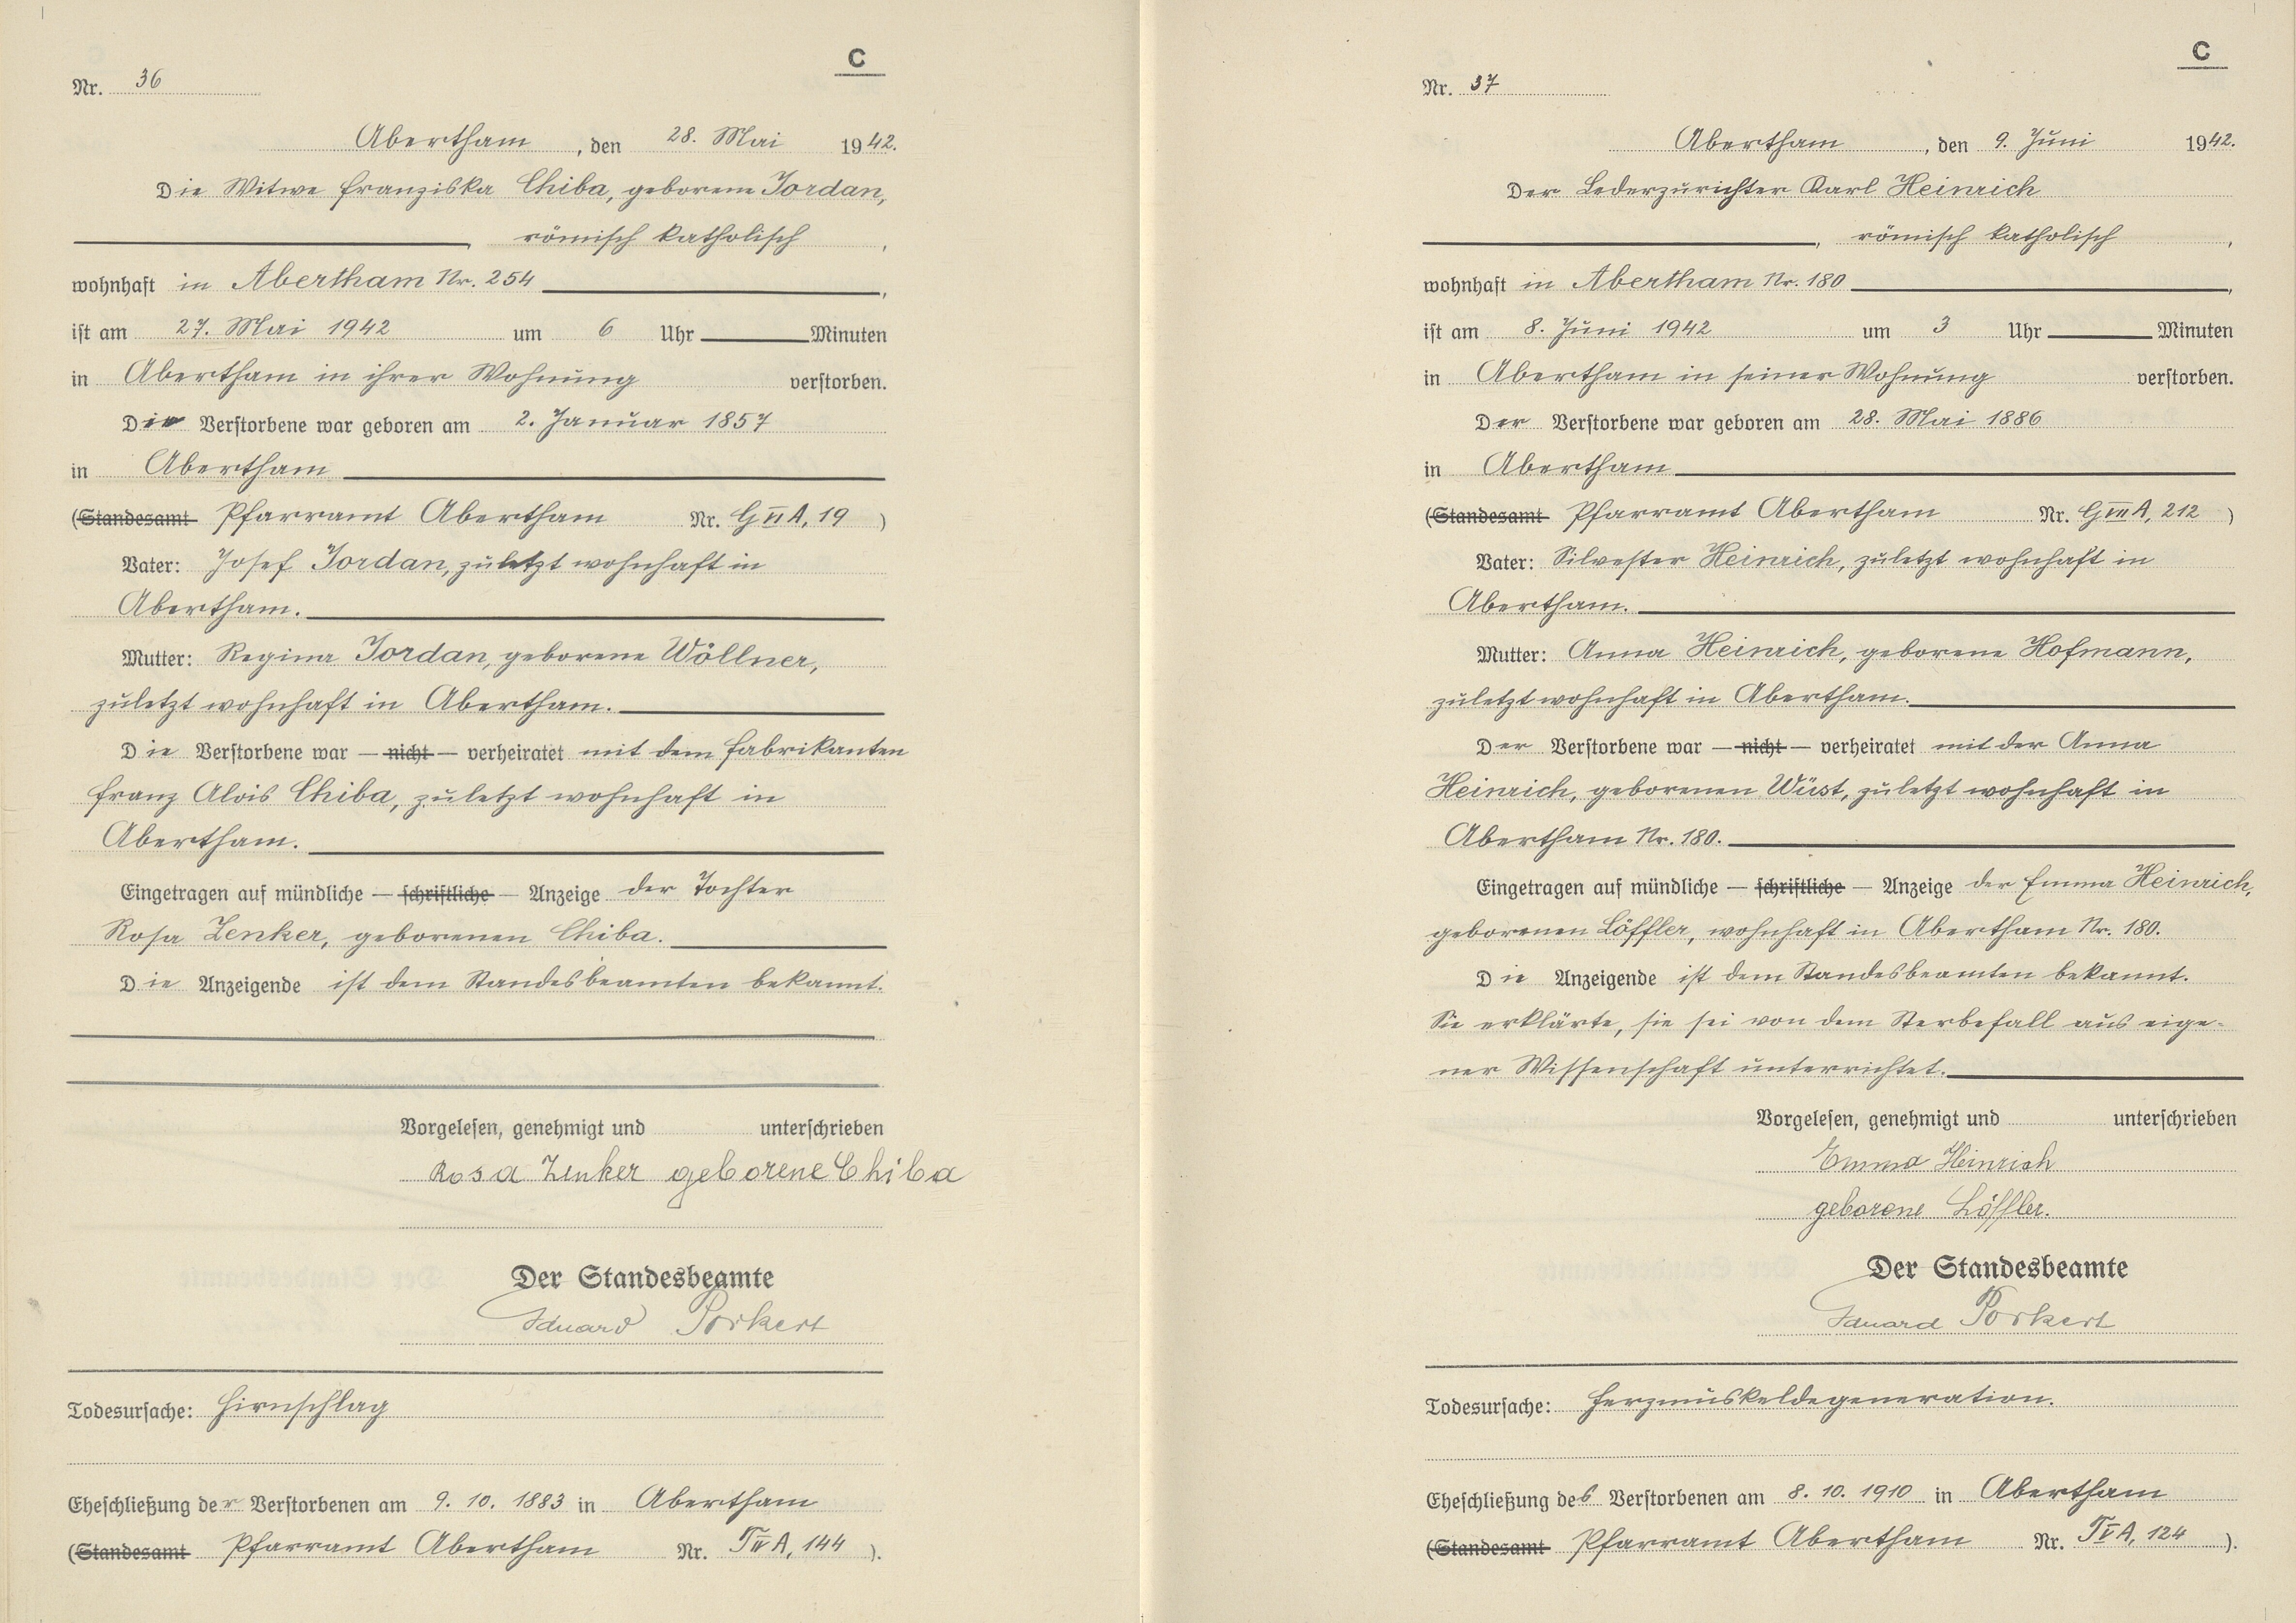 C
Nr. 36
Abertham, den 28. Mai 1942.
Die Witwe Franziska Chiba, geborene Jordan,
römisch katholisch,
wohnhaft in Abertham Nr. 254,
ist am 27. Mai 1942 um 6 Uhr Minuten
in Abertham in ihrer Wohnung verstorben.
Die Verstorbene war geboren am 2. Januar 1857
in Abertham
(Standesamt Pfarramt Abertham Nr. G VI A, 19)
Vater: Josef Jordan, zuletzt wohnhaft in
Abertham.
Mutter: Regina Jordan, geborene Wöllner,
zuletzt wohnhaft in Abertham.
Die Verstorbene war — nicht — verheiratet mit dem Fabrikanten
Franz Alois Chiba, zuletzt wohnhaft in
Abertham.
Eingetragen auf mündliche — schriftliche — Anzeige der Tochter
Rosa Zenker, geborenen Chiba.
Die Anzeigende ist dem Standesbeamten bekannt.
Vorgelesen, genehmigt und unterschrieben
Rosa Zenker geborene Chiba
Der Standesbeamte
Eduard Porkert
Todesursache: Hirnschlag
Eheschließung der Verstorbenen am 9. 10. 1883 in Abertham
(Standesamt Pfarramt Abertham Nr. T IV A, 144).
C
Nr. 37
Abertham, den 9. Juni 1942.
Der Lederzurichter Karl Heinrich
, römisch katholisch,
wohnhaft in Abertham Nr. 180,
ist am 8. Juni 1942 um 3 Uhr Minuten
in Abertham in seiner Wohnung verstorben.
Der Verstorbene war geboren am 28. Mai 1886
in Abertham
(Standesamt Pfarramt Abertham Nr. G VIII A, 212)
Vater: Silvester Heinrich, zuletzt wohnhaft in
Abertham.
Mutter: Anna Heinrich, geborene Hofmann,
zuletzt wohnhaft in Abertham.
Der Verstorbene war — nicht — verheiratet mit der Anna
Heinrich, geborenen Wüst, zuletzt wohnhaft in
Abertham Nr. 180.
Eingetragen auf mündliche — schriftliche — Anzeige der Emma Heinrich,
geborenen Löffler, wohnhaft in Abertham Nr. 180.
Die Anzeigende ist dem Standesbeamten bekannt.
Sie erklärte, sie sei von dem Sterbefall aus eige-
ner Wissenschaft unterrichtet.
Vorgelesen, genehmigt und unterschrieben
Emma Heinrich
geborene Löffler.
Der Standesbeamte
Eduard Porkert
Todesursache: Herzmuskeldegeneration.
Eheschließung des Verstorbenen am 8. 10. 1910 in Abertham
(Standesamt Pfarramt Abertham Nr. T V A, 124).